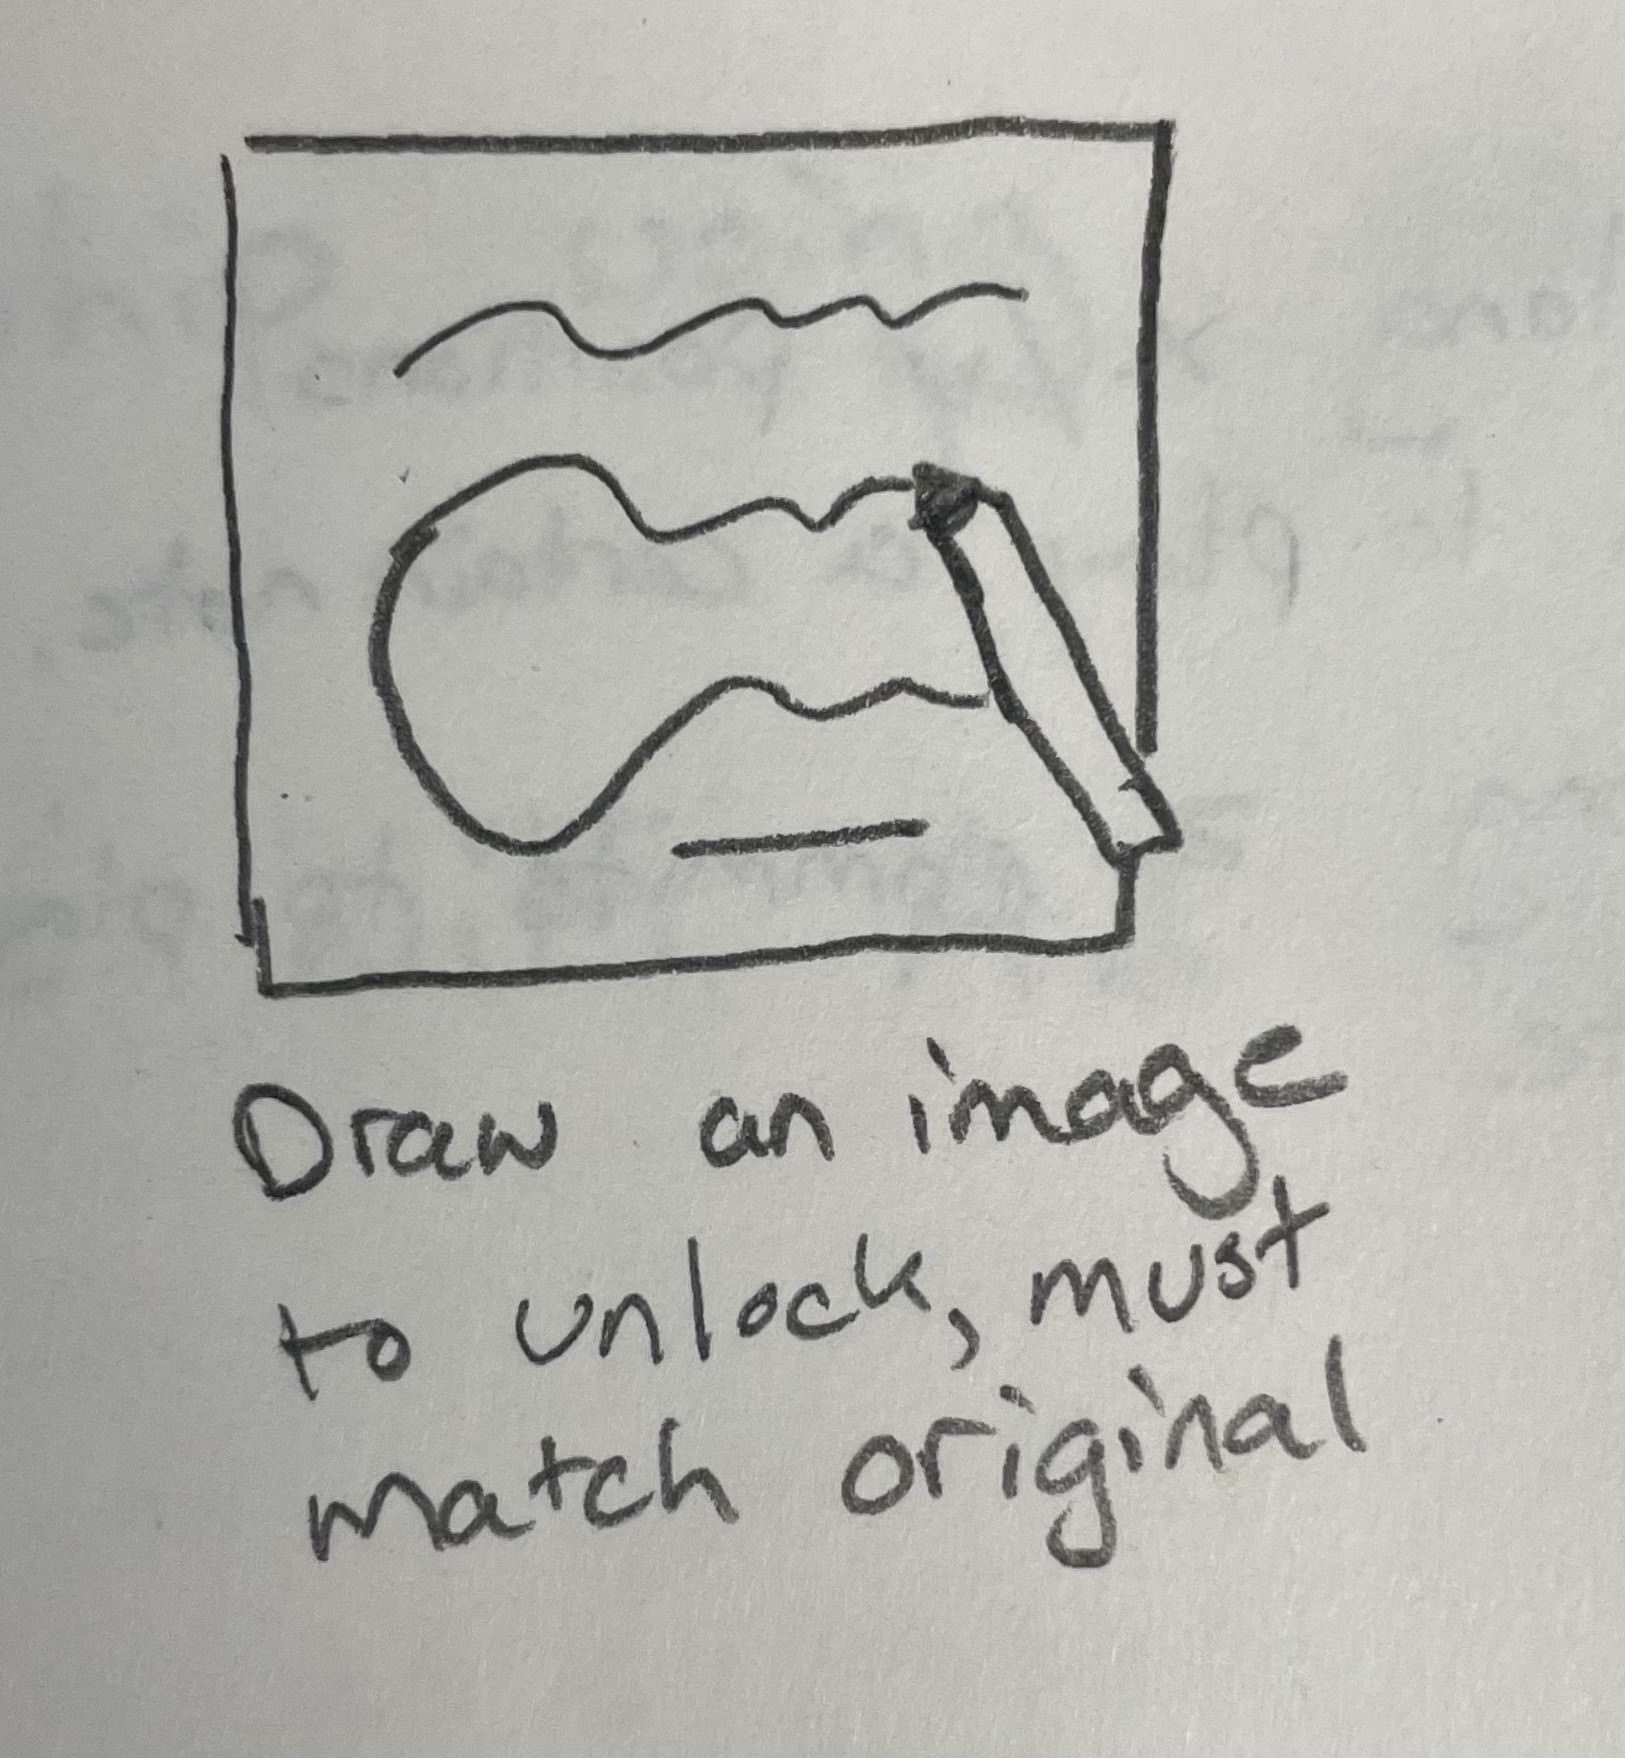 Draw an image
to unlock, must
match original